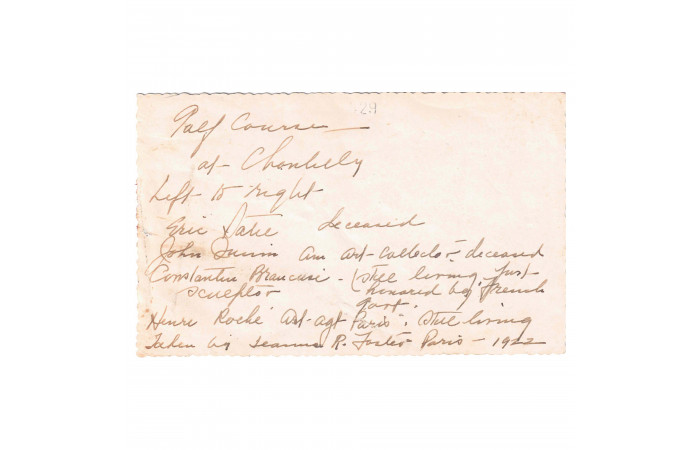 529
Golf Course —
at Chantilly
Left to right
Eric Satie deceased
John Quinn Am art-collector - deceased
Constantin Brancusi - (still living just
sculptor honored by French
Govt.
Henri Roché art-agt Paris - still living
Taken by Jeanne R. Foster Paris - 1922